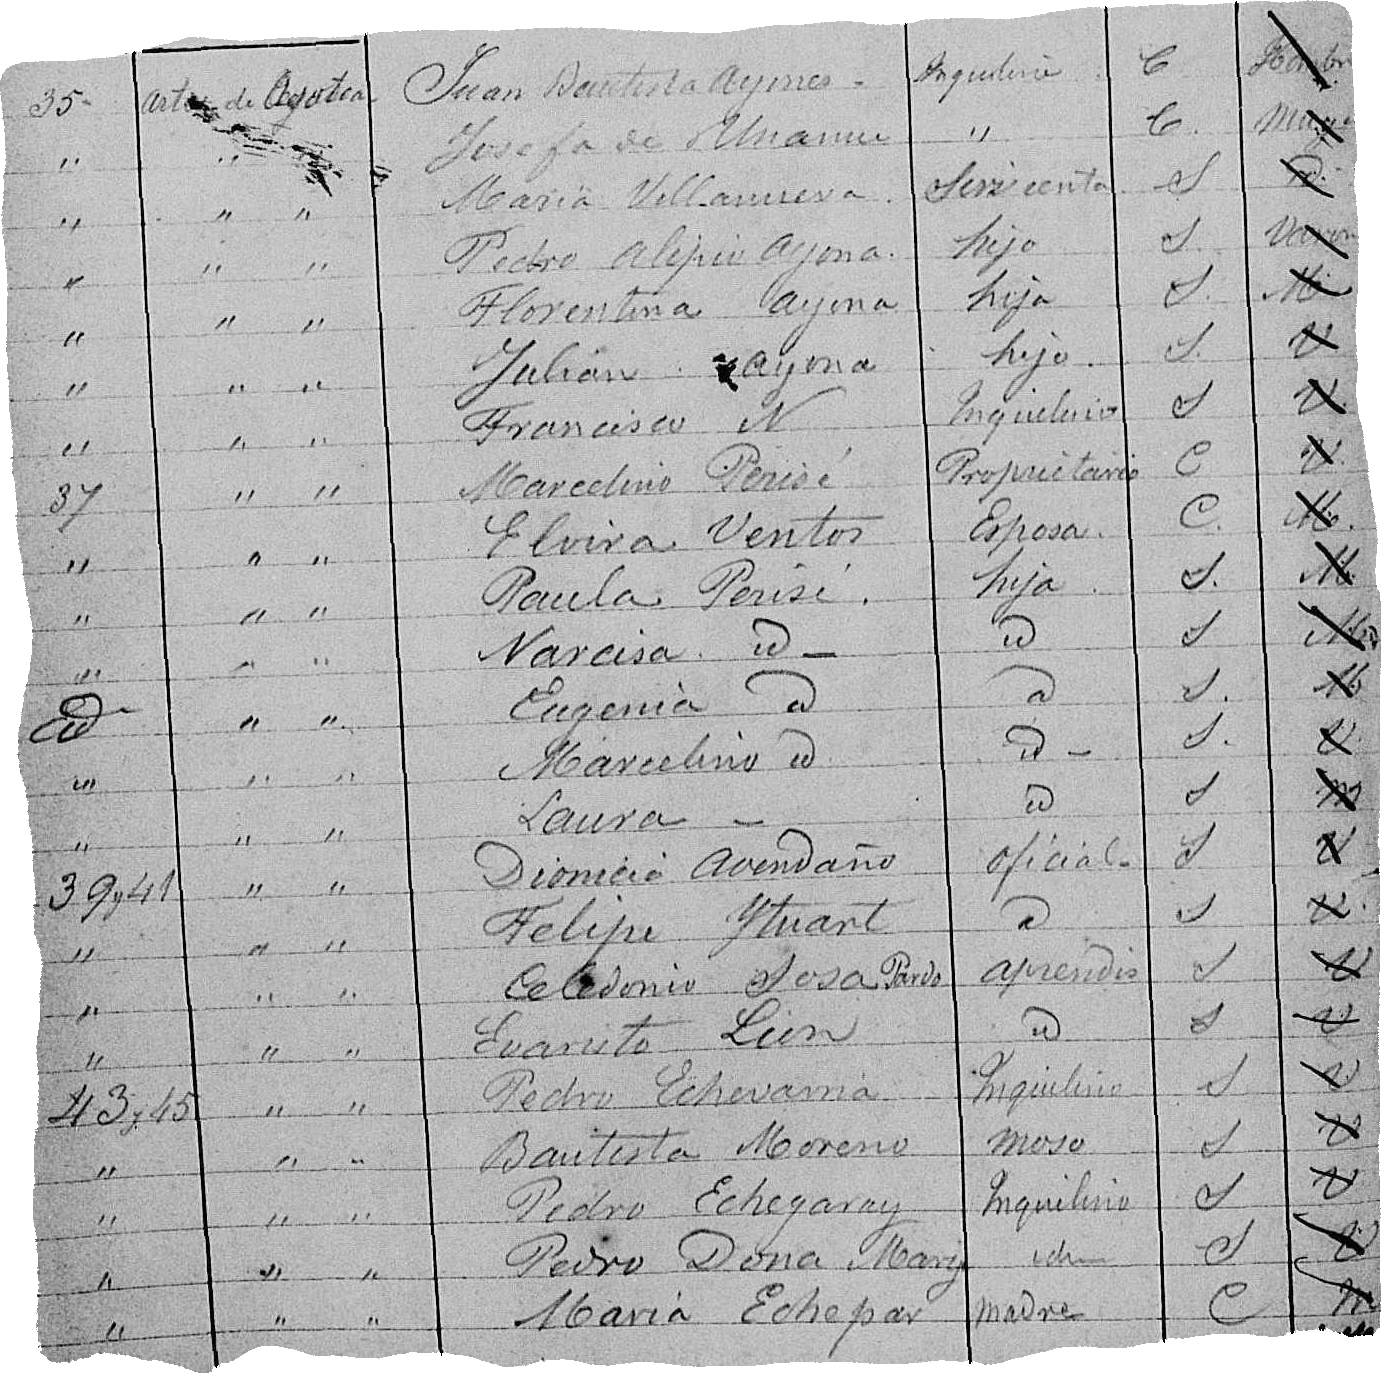 35 Juan Bautista Inquilino C Hombre
" " Josefa de Unanue " C. Muger
" " " Maria Villanueva. Sirvienta. S
" " " Pedro Alipio Ayona. hijo S. Varon
" " " Florentina Ayona hija S. M
" " " Julian Ayona hijo. S. V
" " " Francisco N Inquilino S V.
37 " " Marcelino Perisé Propietario C V.
" " " Elvira Ventos Esposa. C. M.
" " " Paula Perisé. hija. S. M.
" " " Narcisa. id — id S M
id " " Eugenia id id S. M
" " " Marcelino id id — S. V
" " " Laura — id S M
39 y 41 " " Dionicio Avendaño oficial - S V
" " " Felipe Ytuart id S V.
" " " Celedonio Sosa Pardo aprendis S V
" " " Evaristo Lion id S V
43 y 45 " " Pedro Echevarria Inquilino S V
" " " Bautista Moreno Moso S V
" " " Pedro Echegaray Inquilino S V
" " " Pedro Dona Mary id S V
" " " Maria Echepar Madre C M